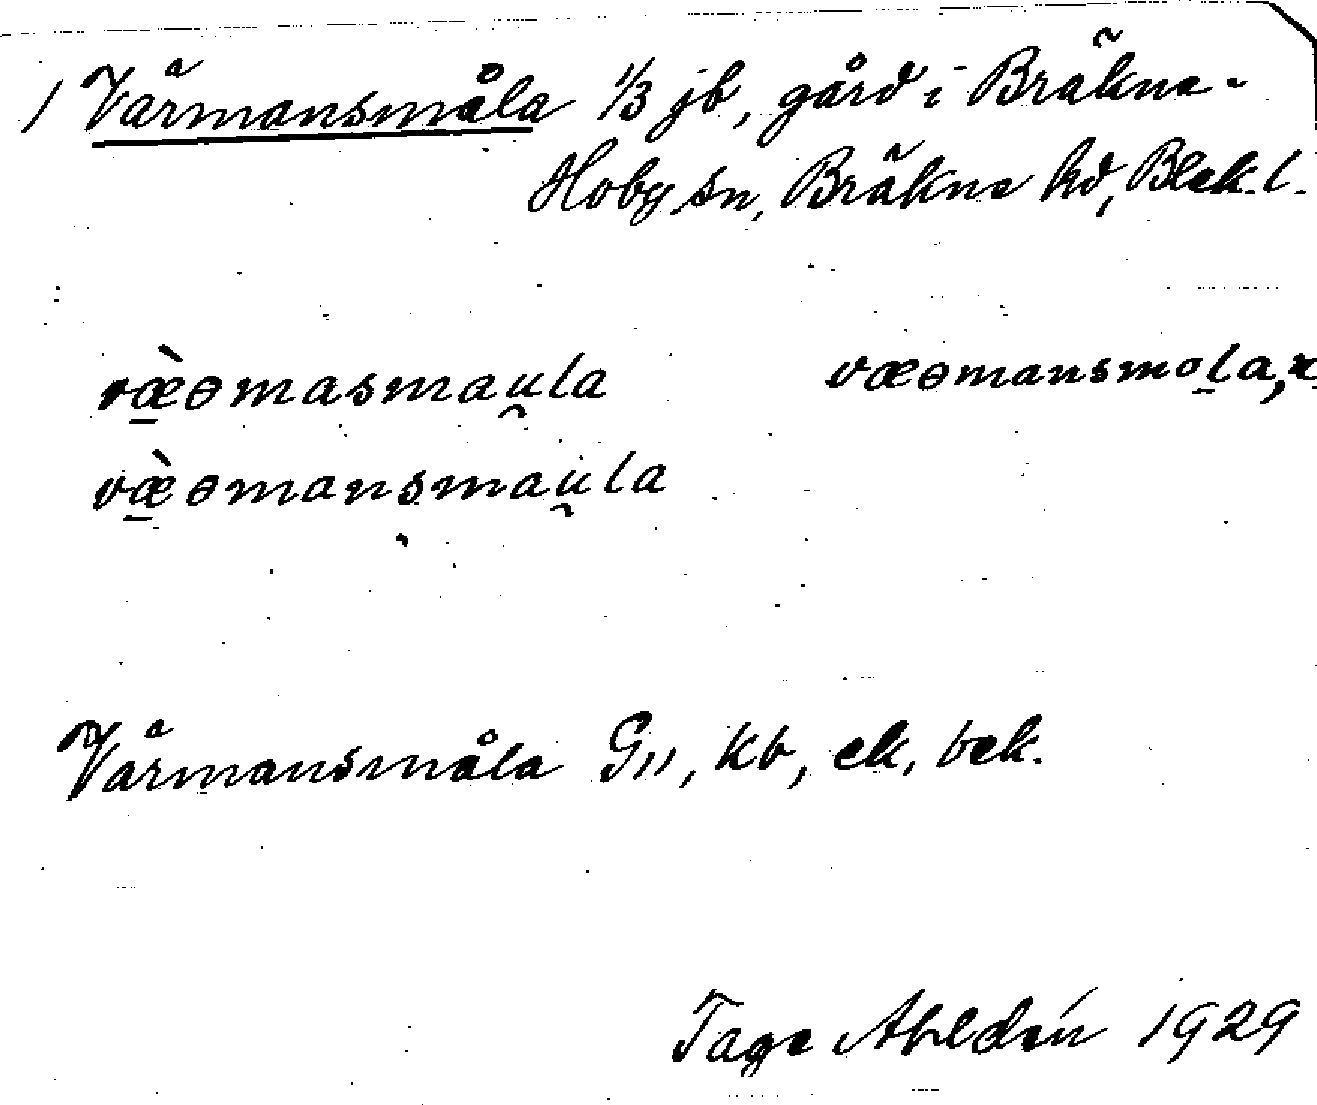 1 Värmansmåla 1/3 jb, gård i Bräkne-
Hoby sn, Bräkne hd, Blek. l.
væ̀əmasmau̯la væəmansmola,
væ̀əmansmau̯la
Värmansmåla G11, kb, ek, bek.
Tage Ahldén 1929